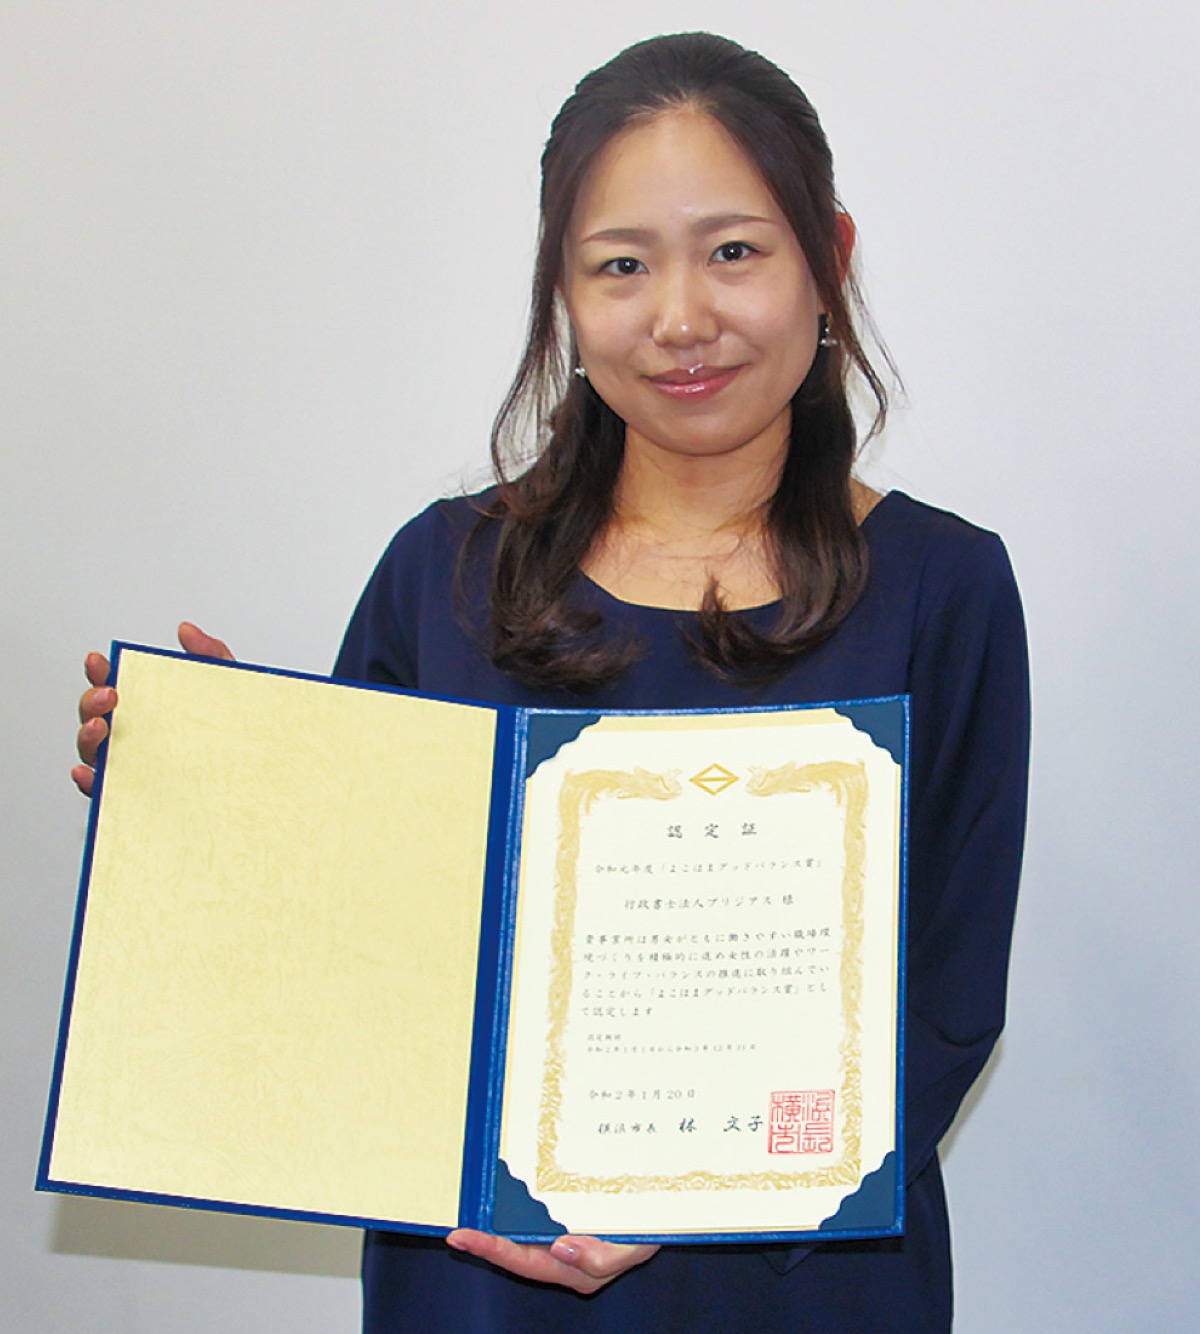 認定証
令和元年度「よこはまグッドバランス賞」
行政書士法人ブリジアス 様
貴事業所は男女がともに働きやすい職場環
境づくりを積極的に進め女性の活躍やワー
ク・ライフ・バランスの推進に取り組んでい
ることから「よこはまグッドバランス賞」とし
て認定します
認定期間
令和2年1月1日から令和3年12月31日
令和2年1月20日
横浜市長 林 文子
横浜市長